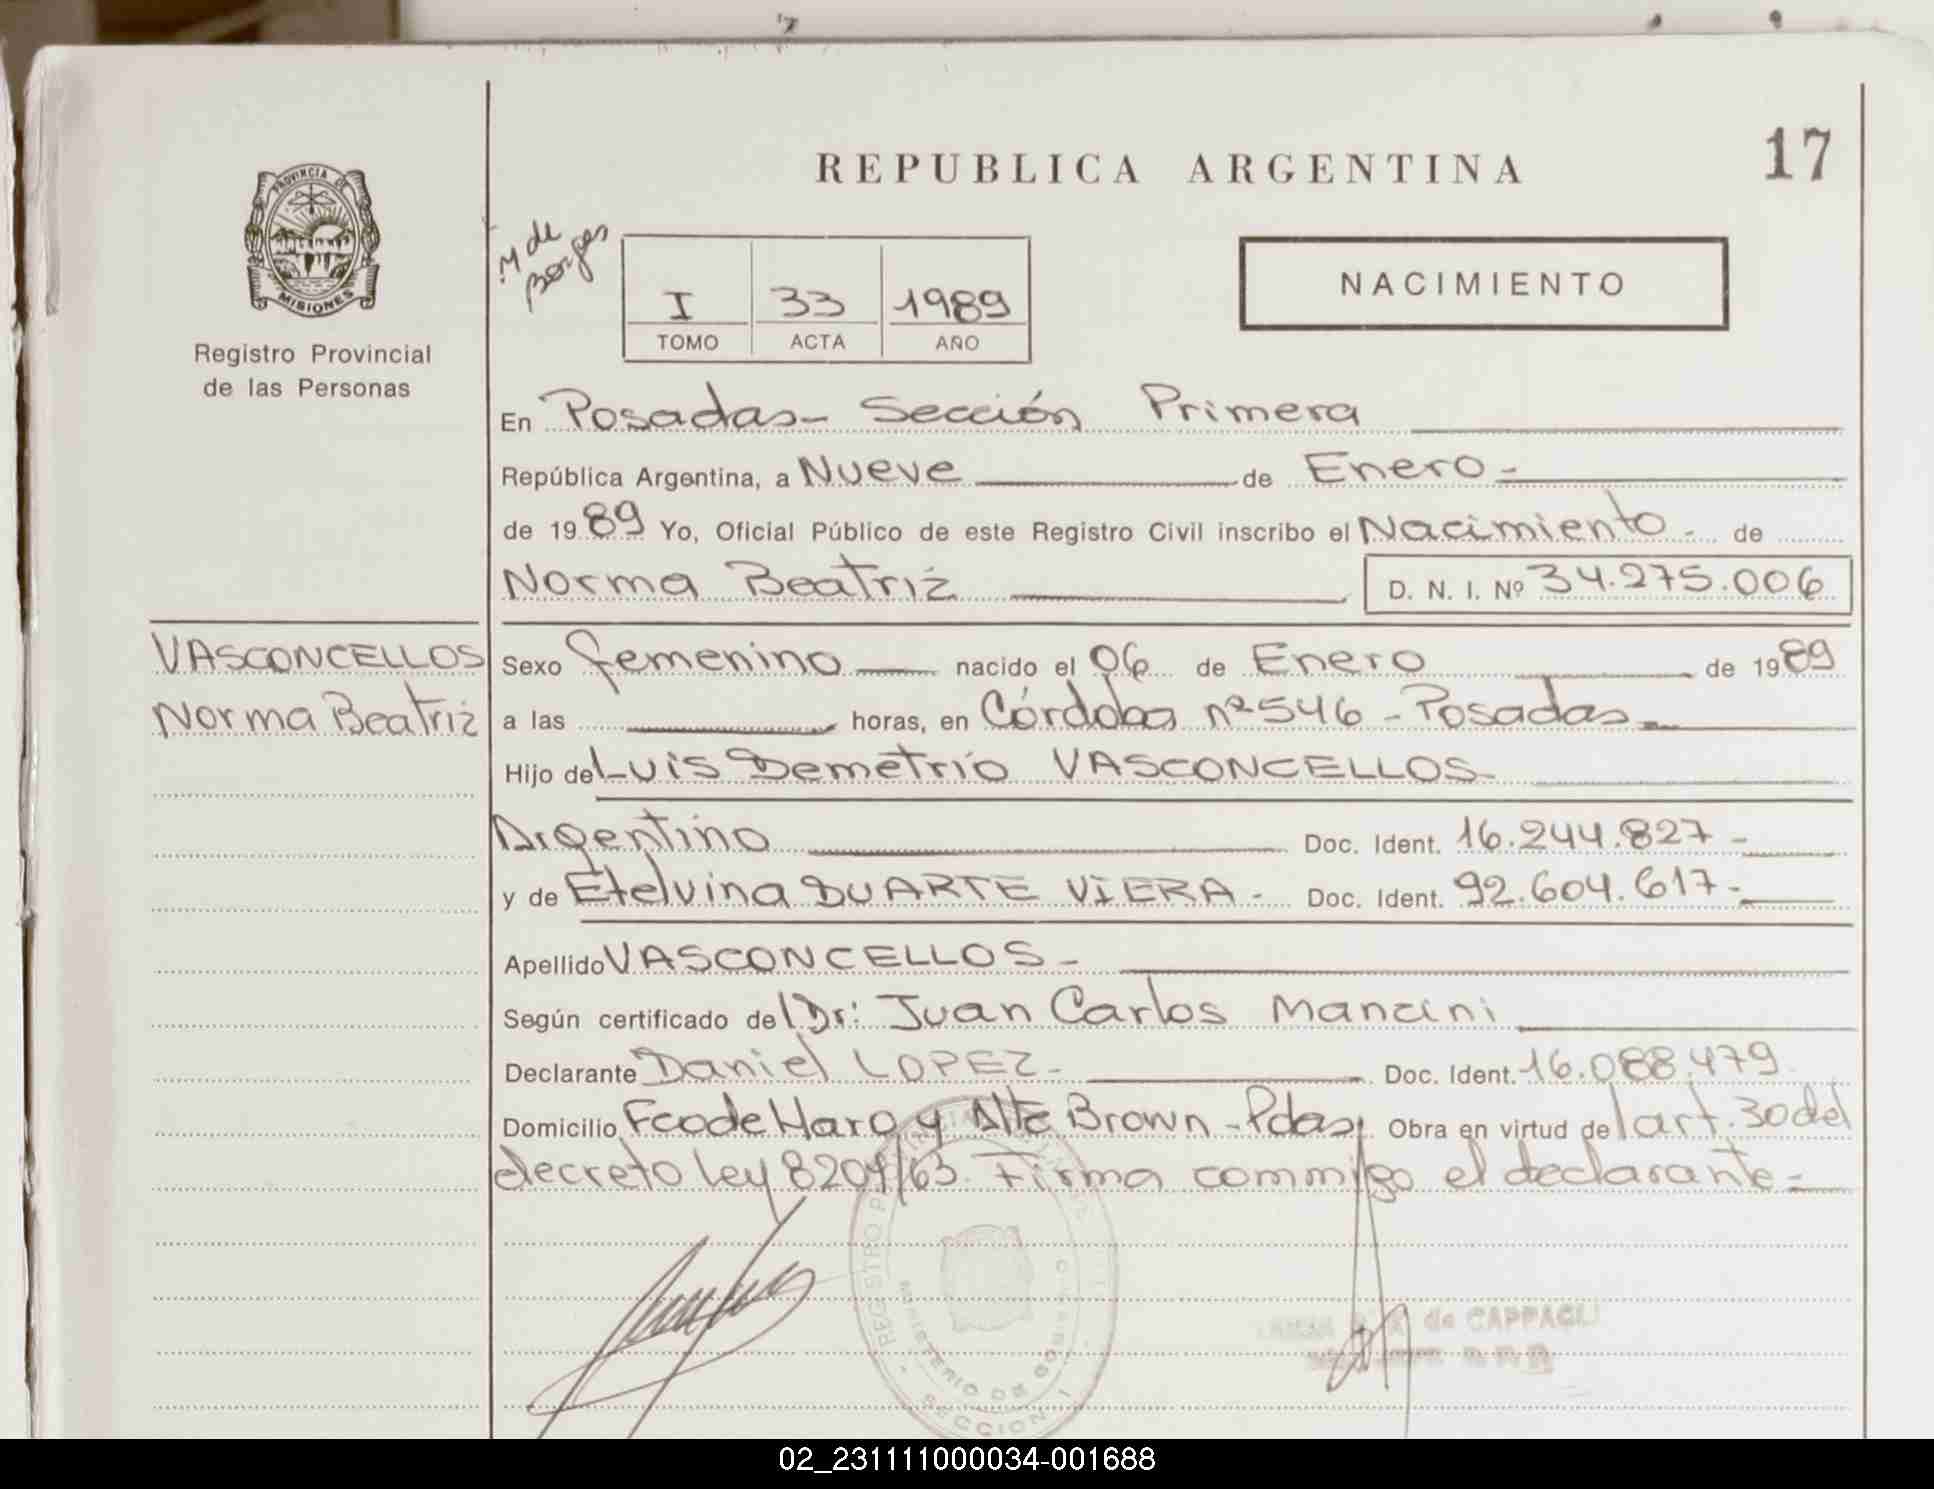 REPUBLICA ARGENTINA
17
PROVINCIA DE
MISIONES
Registro Provincial
de las Personas
M de
Borges
I 33 1989
TOMO ACTA AÑO
NACIMIENTO
En Posadas- Sección Primera
República Argentina, a Nueve de Enero-
de 1989 Yo, Oficial Público de este Registro Civil inscribo el Nacimiento- de
Norma Beatriz D. N. I. Nº 34.275.006
VASCONCELLOS
Norma Beatriz
Sexo femenino nacido el 06 de Enero de 1989
a las horas, en Córdoba nº 546 - Posadas-
Hijo de Luis Demetrio VASCONCELLOS-
Argentino Doc. Ident. 16.244.827-
y de Etelvina DUARTE VIERA- Doc. Ident. 92.604.617-
Apellido VASCONCELLOS-
Según certificado del Dr: Juan Carlos Manzini
Declarante Daniel LOPEZ- Doc. Ident. 16.088.479
Domicilio Fco de Haro y Alte Brown - Pdas Obra en virtud del art. 30 del
decreto ley 8204/63. Firma commigo el declarante-
REGISTRO
MINISTERIO DE GOBIERNO
SECCION I
de CAPPAGLI
02_231111000034-001688